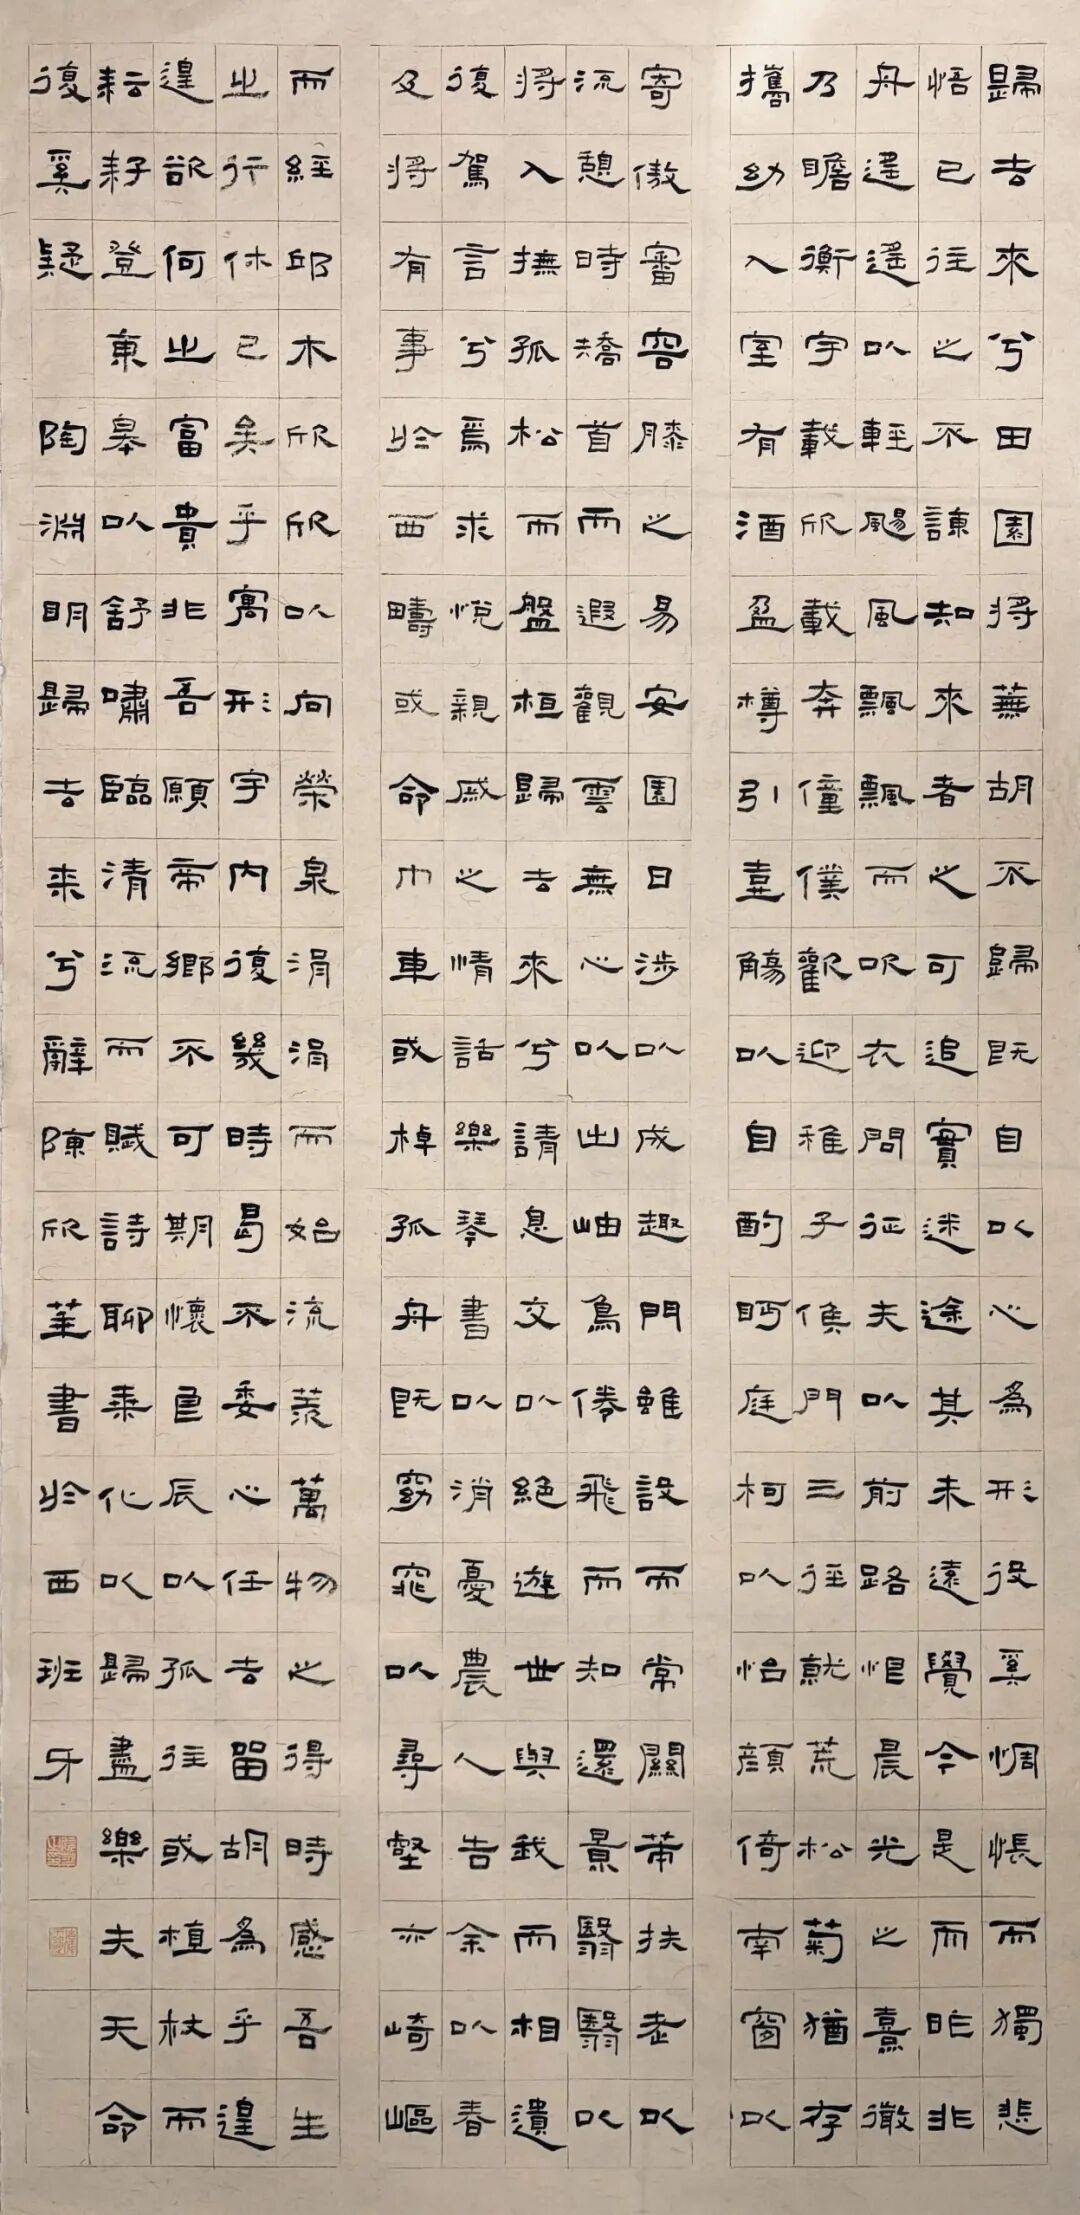 歸去來兮田園將蕪胡不歸既自以心為形役奚惆悵而獨悲
悟已往之不諫知來者之可追實迷途其未遠覺今是而昨非
舟遙遙以輕颺風飄飄而吹衣問征夫以前路恨晨光之熹微
乃瞻衡宇載欣載奔僮僕歡迎稚子候門三徑就荒松菊猶存
攜幼入室有酒盈樽引壺觴以自酌眄庭柯以怡顏倚南窗以
寄傲審容膝之易安園日涉以成趣門雖設而常關策扶老以
流憩時矯首而遐觀雲無心以出岫鳥倦飛而知還景翳翳以
將入撫孤松而盤桓歸去來兮請息交以絕遊世與我而相遺
復駕言兮焉求悅親戚之情話樂琴書以消憂農人告余以春
及將有事於西疇或命巾車或棹孤舟既窈窕以尋壑亦崎嶇
而經邱木欣欣以向榮泉涓涓而始流羨萬物之得時感吾生
之行休已矣乎寓形宇內復幾時曷不委心任去留胡為乎遑
遑欲何之富貴非吾願帝鄉不可期懷良辰以孤往或植杖而
耘耔登東皋以舒嘯臨清流而賦詩聊乘化以歸盡樂夫天命
復奚疑 陶淵明歸去來兮辭陳欣書於西班牙